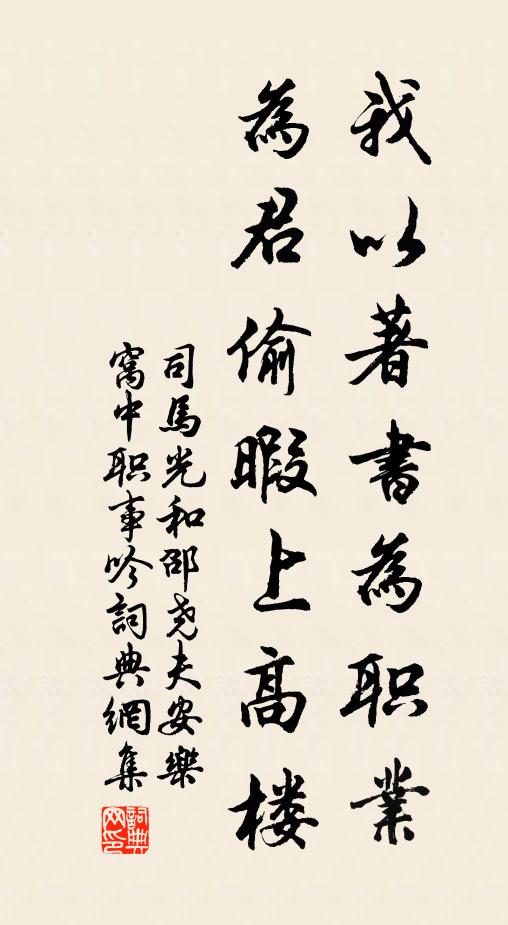 我以著書為职業
為君偷暇上高楼
司馬光和邵尧夫安樂
窩中职事吟詞典網集
詞典网印